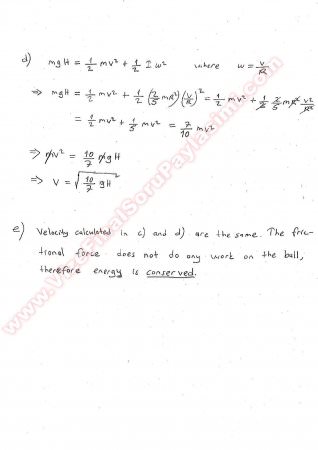 d) mgH = 1/2 mv² + 1/2 I w² where w = v/R
⇒ mgH = 1/2 mv² + 1/2 (2/5 mR²)(v/R)² = 1/2 mv² + 1/2 2/5 mR² v²/R²
= 1/2 mv² + 1/5 mv² = 7/10 mv²
⇒ mv² = 10/7 mgH
⇒ V = √(10/7 gH)
e) Velocity calculated in c) and d) are the same. The fric-
tional force does not do any work on the ball,
therefore energy is conserved.
www.VizeFinalSoruPaylasimi.com